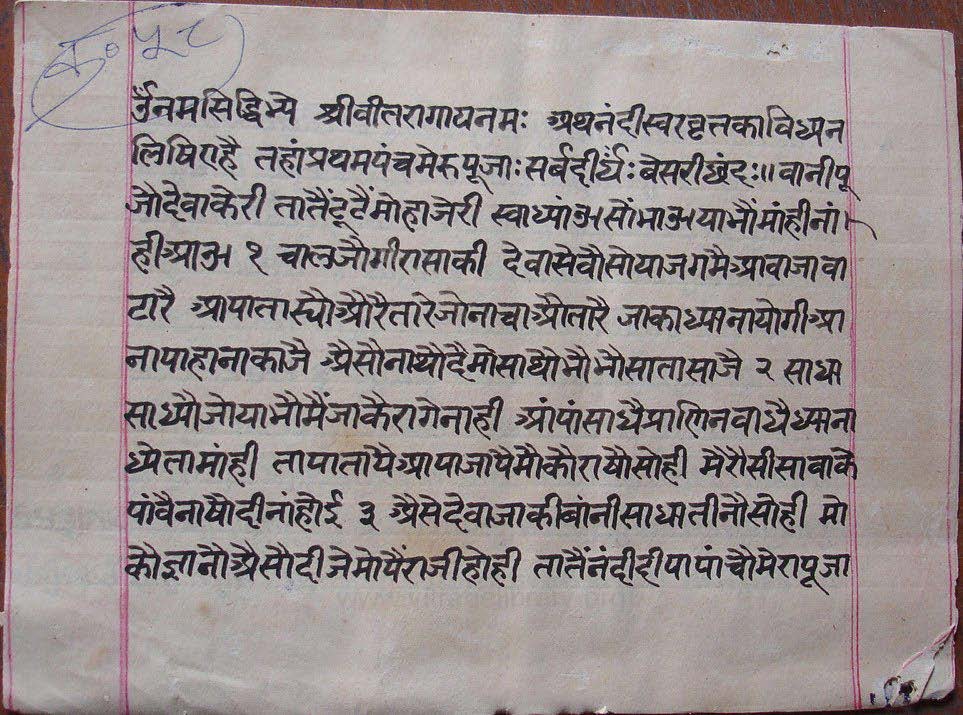 क॰ पू ८
ॐनमसिद्धिभ्ये श्रीवीतरागायनमः अथनंदीस्वरवृत्तकाविध्यन
लिषिराहै तहांप्रथमपंचमेरुपूजाः सर्बदीर्घैः बेसरीछंदः॥ वानीपू
जौदेवाकैरी तातैंटूटैंमोहाजेरी स्वाध्यां
हीआअ १ चालजौगीरासाकी देवासेवौसोयाजगमैआवाजावा
टारै आपातास्यौऔरैतारेजोनाचाऔतारै जाकाध्यानायोगीआ
नापाहानाकाजै असौनाथोदैमोसाथोभौभौसातासाजै २ साधा
साध्यौजोयाभौमैंजाकैरागेनाही आंपांसाधैप्राणिनवाधैध्याना
ध्येतामांही तापातापैआपाजापैमौकौराषौसोही मैरौसीसावाकै
पांवैनाषौदीनांहोई ३ असेदेवाजाकीबांनीसाधातीनौसोही मो
कौज्ञानौअसौदीजेमोपैंराजीहोही तातैंनंदीदीपापांचौमेरापूजा